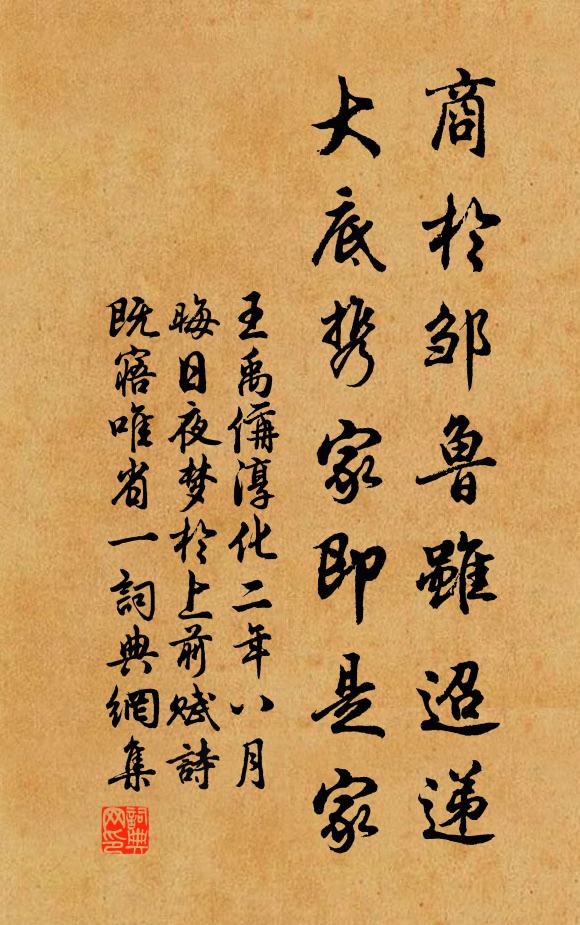 商於邹魯雖迢递
大底携家即是家
王禹偁淳化二年八月
晦日夜梦於上前赋詩
既寤唯省一詞典網集
詞典网印